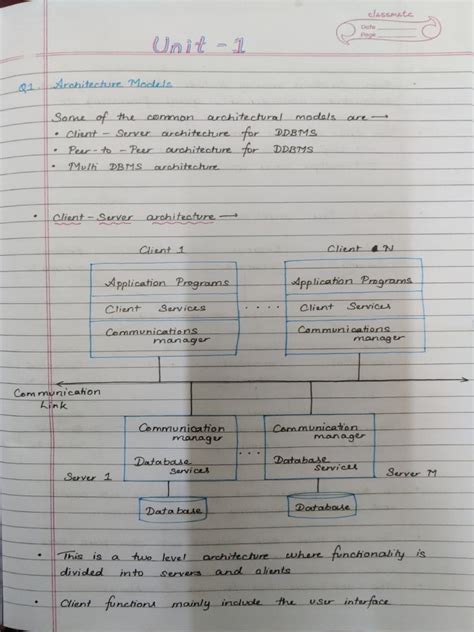 classmate
Date
Page
Unit - 1
Q1. Architecture Models
Some of the common architectural models are →
• Client - Server architecture for DDBMS
• Peer - to - Peer architecture for DDBMS
• Multi DBMS architecture
• Client - Server architecture →
Client 1 Client N
Application Programs Application Programs
Client Services . . . . Client Services
Communications manager Communications manager
Communication Link
Communication manager Communication manager
Database Services . . . Database Services
Server 1 Server M
Database Database
• This is a two level architecture where functionality is
divided into servers and clients
• Client functions mainly include the user interface